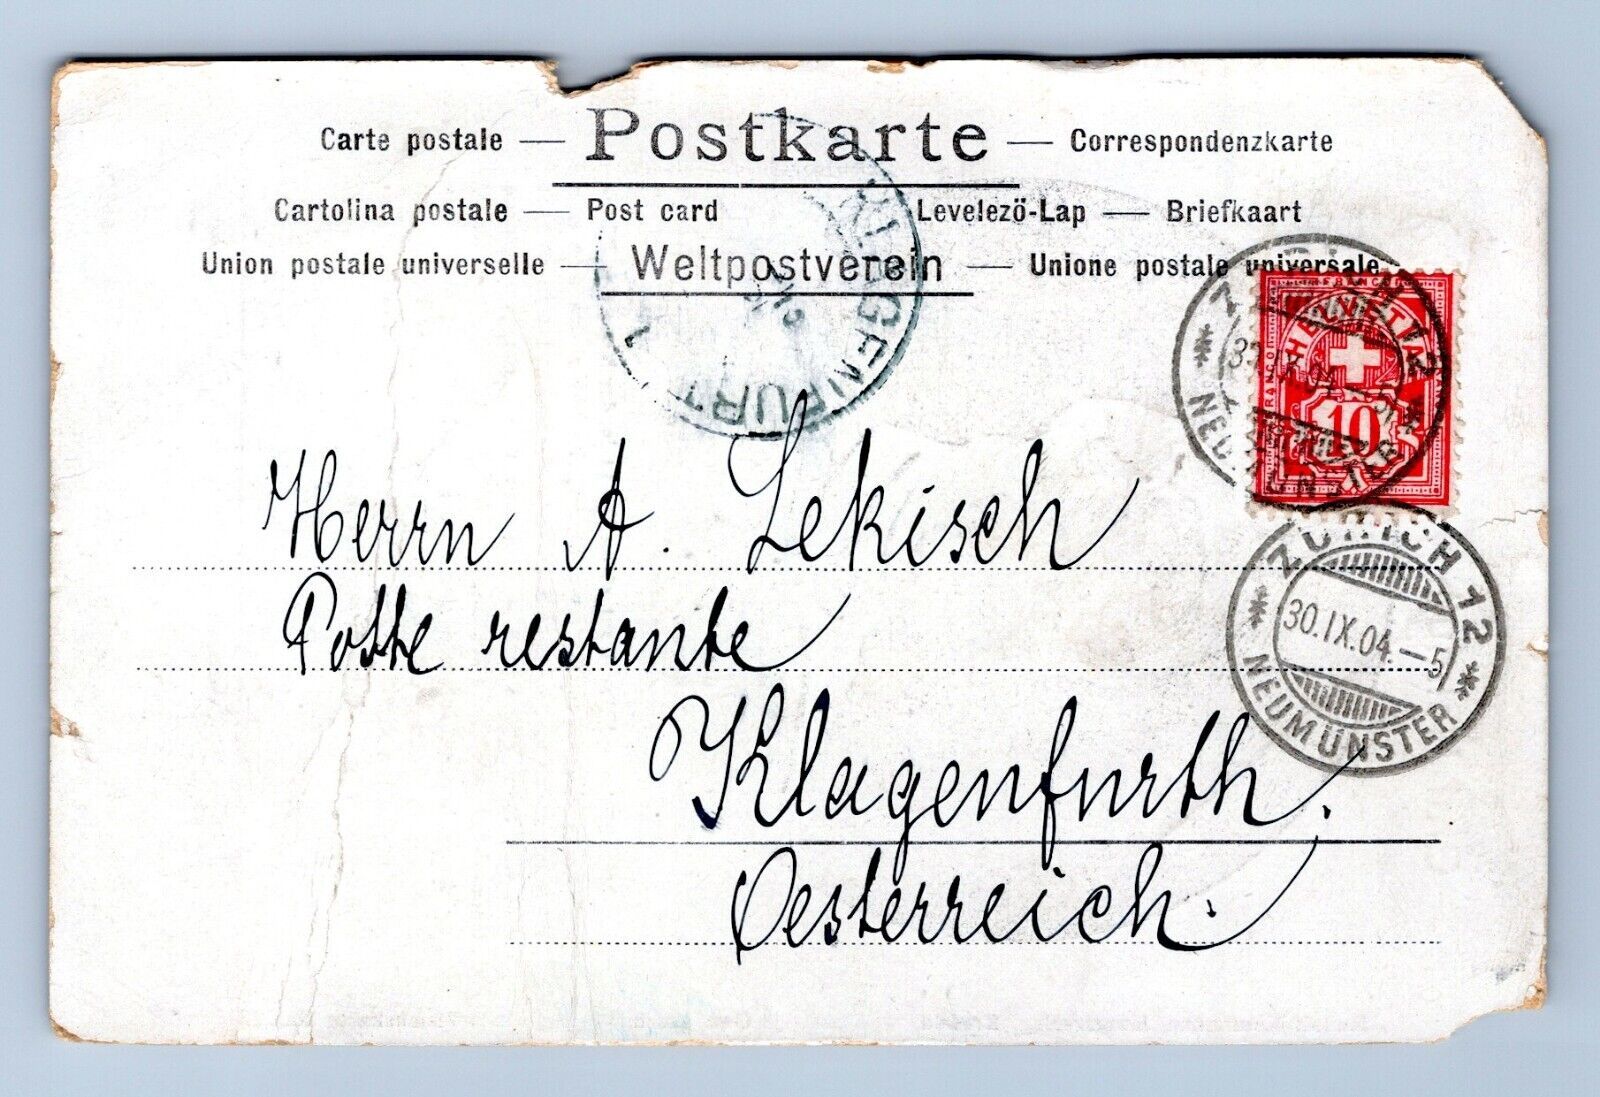 Carte postale — Postkarte — Correspondenzkarte
Cartolina postale — Post card Levelezö-Lap — Briefkaart
Union postale universelle — Weltpostverein — Unione postale universale
KLAGENFURT 1
HELVETIA
FRANCO
10
ZÜRICH 12
30.IX.04.–5
NEUMÜNSTER
Herrn A. Lekisch
Poste restante
ZÜRICH 12
30.IX.04.–5
NEUMÜNSTER
Klagenfurth.
Oesterreich.